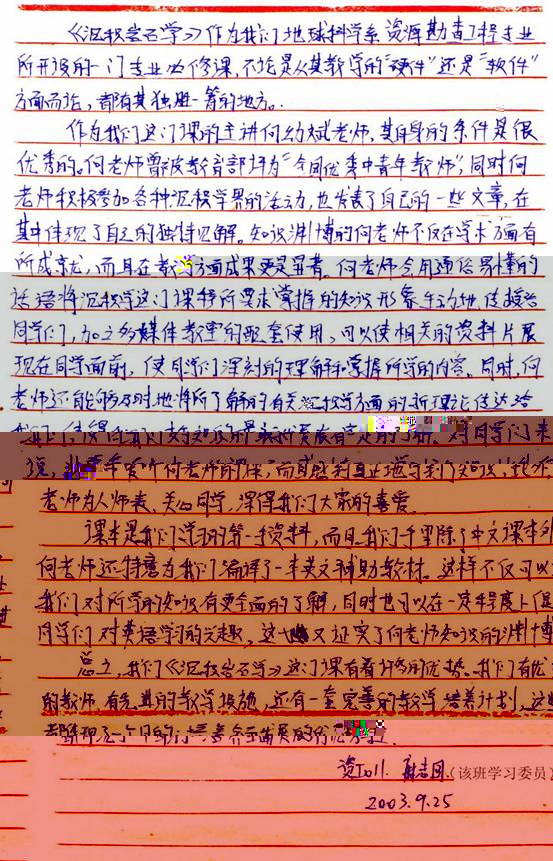 《沉积岩石学》作为我们地球科学系资源勘查工程专业
所开设的一门专业必修课，不论是从其教学的“硬件”还是“软件”
方面而论，都有其独胜一筹的地方。
作为我们这门课的主讲何幼斌老师，其自身的条件是很
优秀的。何老师曾被教育部评为“全国优秀中青年教师”，同时何
老师积极参加各种沉积学界的活动，也发表了自己的一些文章，在
其中体现了自己的独特见解。知识渊博的何老师不仅在学术方面有
所成就，而且在教学方面成果更是显著。何老师会用通俗易懂的
话语将沉积学这门课程所要求掌握的知识形象生动地传授给
同学们，加之多媒体教室的配套使用，可以使相关的资料片展
现在同学面前，使同学们深刻的理解和掌握所学的内容。同时，何
老师还能够及时地将所了解的有关沉积学方面的新理论传达给
我们，使得我们对知识的最新进展有一定的了解。对同学们来
说，非常喜爱听何老师的课，而且感到真正地学到了知识，
老师为人师表、关心同学，深得我们大家的喜爱。
课本是我们学习的第一手资料，而且我们手里除了中文课本外
何老师还特意为我们编译了一本英文辅助教材。这样不仅可以
我们对所学的知识有更全面的了解，同时也可以在一定程度上促
同学们对英语学习的兴趣，这又证实了何老师知识的渊博
总之，我们《沉积岩石学》这门课有着许多的优势。我们有优
的教师，有先进的教学设施，还有一套完善的教学培养计划，这些
资工011. 谢志国（该班学习委员）
2003.9.25